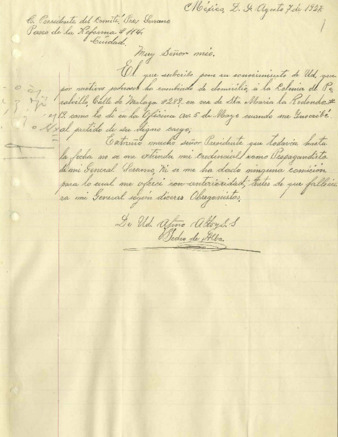 México D. F. Agosto 7 de 1927
C. Presidente del Comité, Pro. Serrano
Paseo de la Reforma # 114.
Ciudad.
Muy Señor mio.
El que suscribe pone en conocimiento de Ud. que
por motivos he cambiado de domicilio, a la Colonia de
Calle de Málaga # 259. en vez de Sta Maria la Redonda #
como lo dí en la Oficina 5 de Mayo cuando me
al partido de su digno cargo;
Extraño mucho señor Presidente que todavia hasta
la fecha no se me extienda mi Credencial como Propagandista
de mi General Serrano, ni se me ha dado ninguna comisión
para lo cual me ofrecí con anterioridad, antes de que
mi General Obregonistas,
De Ud. Afmo Atto y S. S
Pedro de Alba